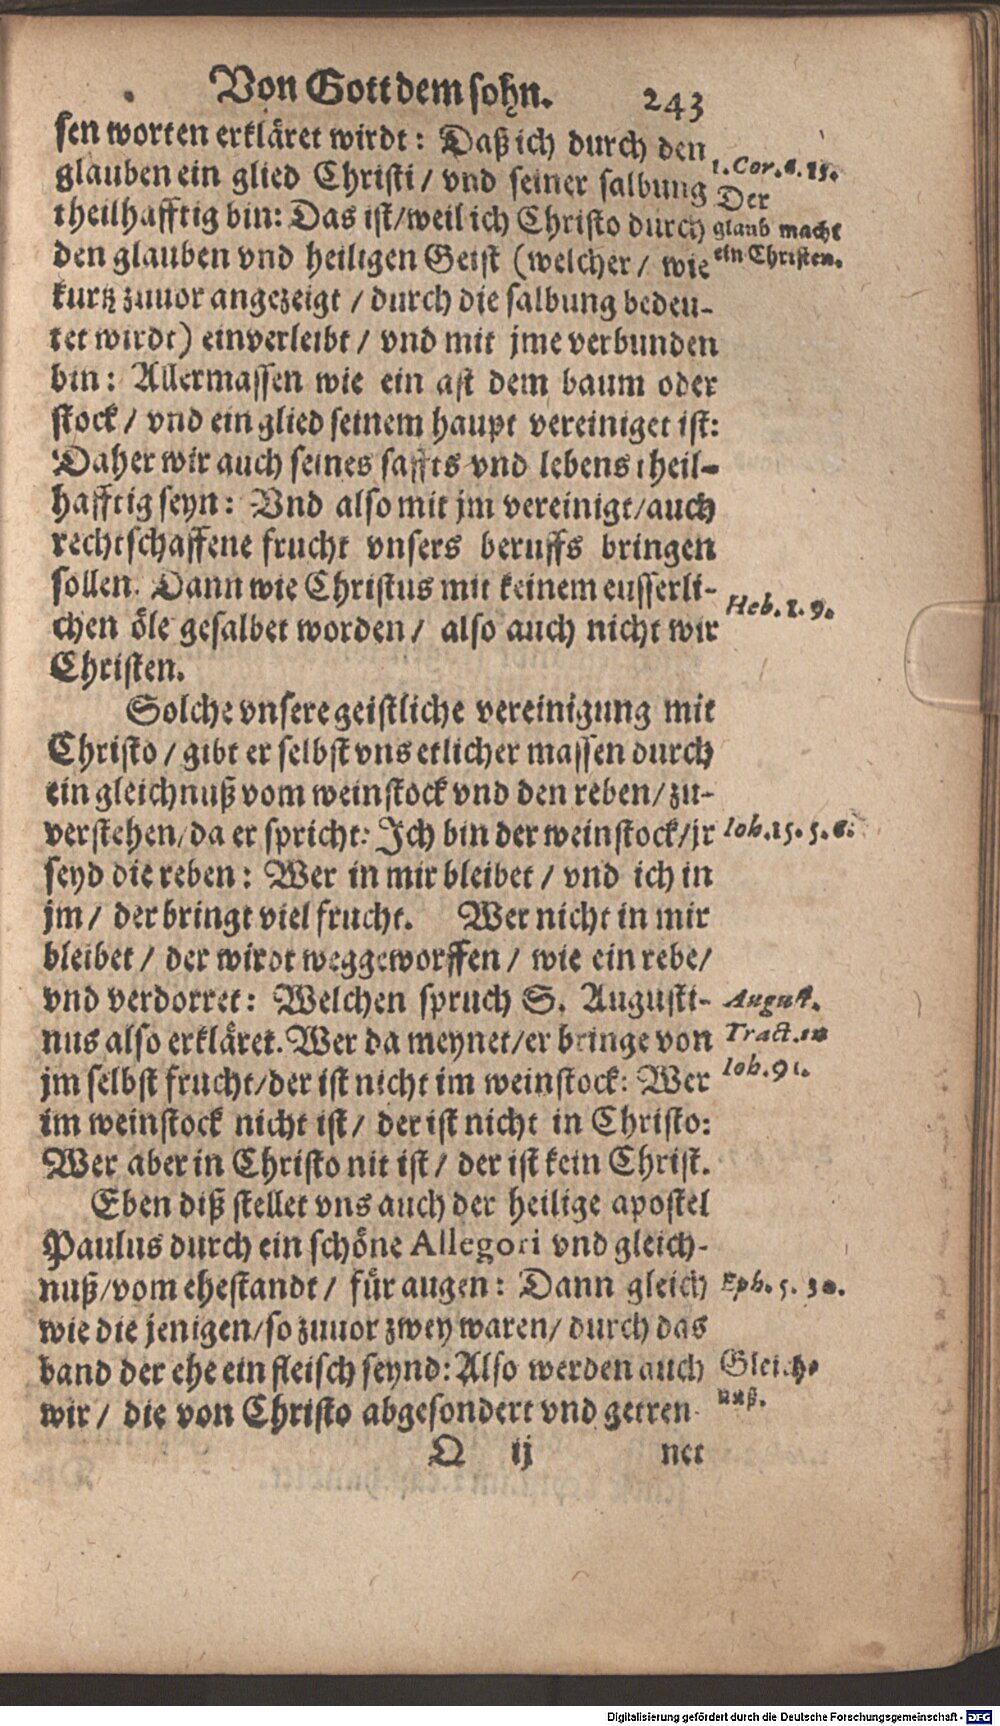 Von Gott dem sohn. 243
sen worten erkläret wirdt: Daß ich durch den
glauben ein glied Christi / vnd seiner salbung
theilhafftig bin: Das ist / weil ich Christo durch
den glauben vnd heiligen Geist (welcher / wie
kurtz zuuor angezeigt / durch die salbung bedeu-
tet wirdt) einverleibt / vnd mit jme verbunden
bin: Allermassen wie ein ast dem baum oder
stock / vnd ein glied seinem haupt vereiniget ist:
Daher wir auch seines saffts vnd lebens theil-
hafftig seyn: Vnd also mit jm vereinigt / auch
rechtschaffene frucht vnsers beruffs bringen
sollen. Dann wie Christus mit keinem eusserli-
chen öle gesalbet worden / also auch nicht wir
Christen.
Solche vnsere geistliche vereinigung mit
Christo / gibt er selbst vns etlicher massen durch
ein gleichnuß vom weinstock vnd den reben / zu-
verstehen / da er spricht: Ich bin der weinstock / jr
seyd die reben: Wer in mir bleibet / vnd ich in
jm / der bringt viel frucht. Wer nicht in mir
bleibet / der wirdt weggeworffen / wie ein rebe /
vnd verdorret: Welchen spruch S. Augusti-
nus also erkläret. Wer da meynet / er bringe von
jm selbst frucht / der ist nicht im weinstock: Wer
im weinstock nicht ist / der ist nicht in Christo:
Wer aber in Christo nit ist / der ist kein Christ.
Eben diß stellet vns auch der heilige apostel
Paulus durch ein schöne Allegori vnd gleich-
nuß / vom ehestandt / für augen: Dann gleich
wie die jenigen / so zuuor zwey waren / durch das
band der ehe ein fleisch seynd: Also werden auch
wir / die von Christo abgesondert vnd getren-
Q ij net
1. Cor. 6. 15.
Der
glaub macht
ein Christen.
Heb. 1. 9.
Ioh. 15. 5. 6.
August.
Tract. in
Ioh. 91.
Eph. 5. 30.
Gleich-
nuß.
Digitalisierung gefördert durch die Deutsche Forschungsgemeinschaft - DFG